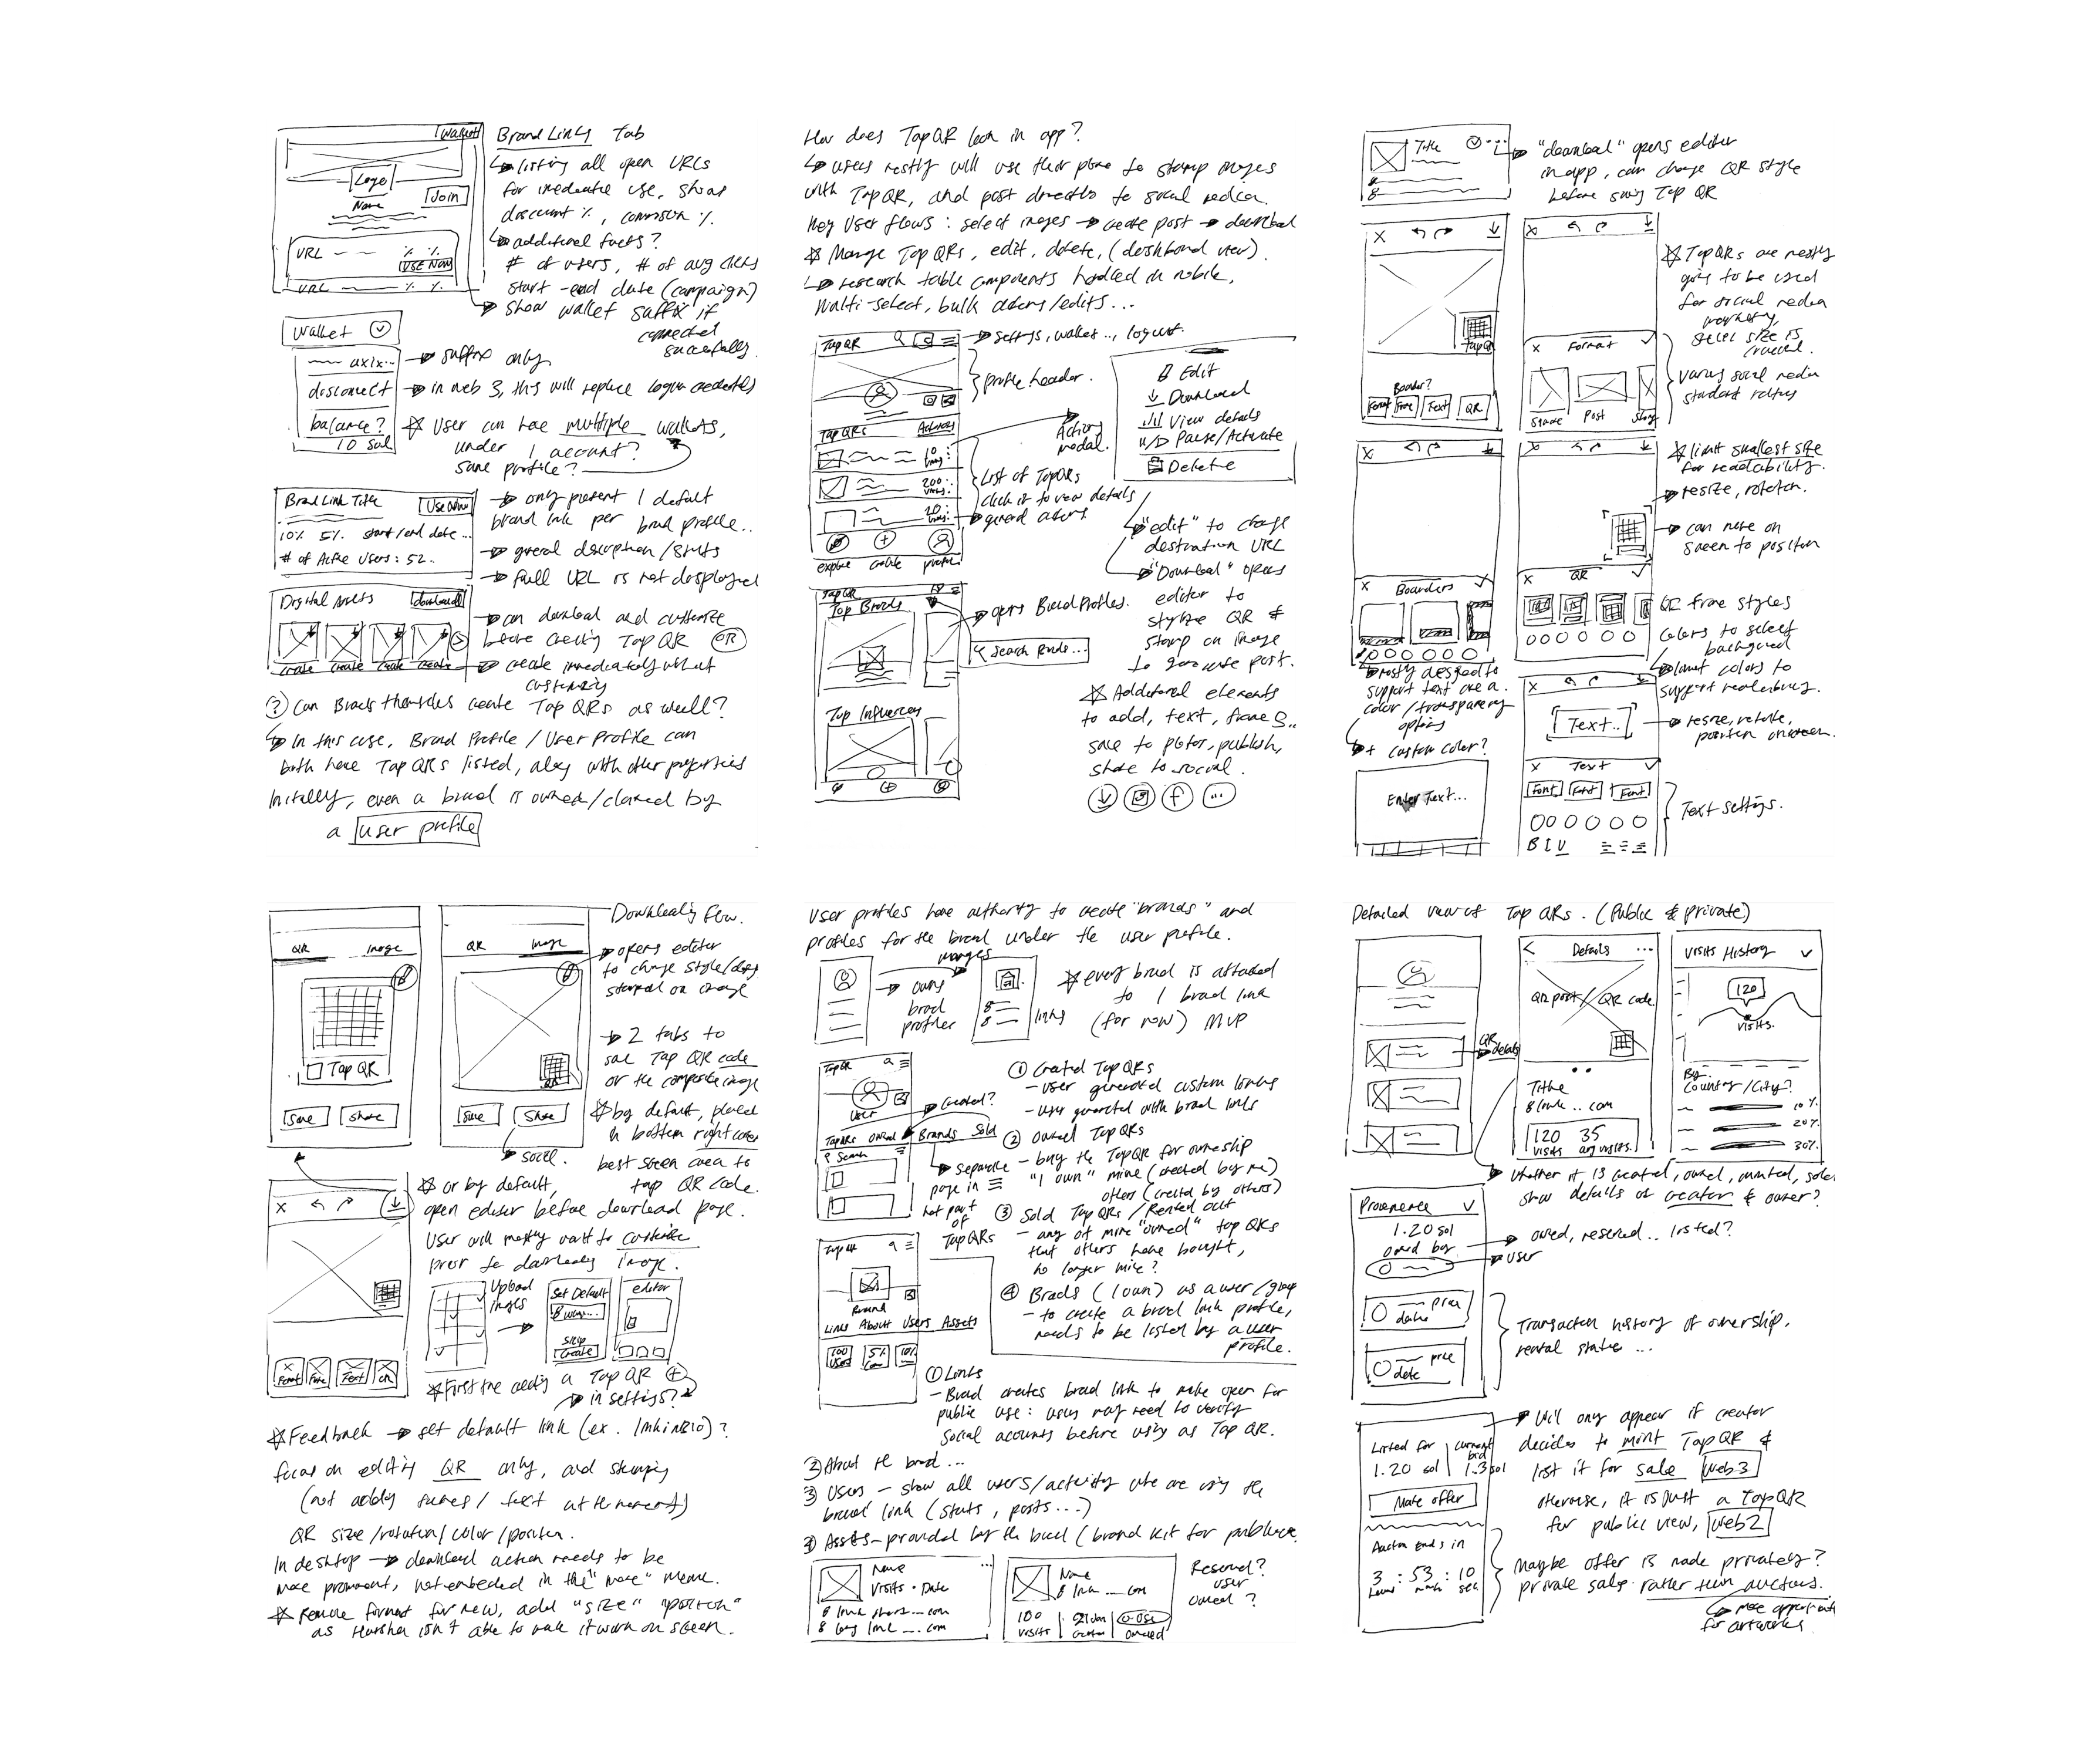 Wallet
Logo
Name
Join
URL
% %
USE NOW
URL
% %
Brand Links Tab
listing all open URLs
for immediate use, show
discount %, commission %.
additional facts?
# of users, # of avg clicks
start-end date (campaign)
show wallet suffix if
connected
successfully.
Wallet
suffix only
disconnect
in web 3, this will replace login credentials
balance?
10 sol
User can have multiple wallets,
under 1 account?
same profile?
Brand Link Title
Use Now
10% 5% start/end date...
# of Active Users: 52..
only present 1 default
brand link per brand profile..
general description/stats
full URL is not displayed
Digital Assets
download
create create create create
can download and customize
before creating TapQR OR
create immediately without
customizing
? Can Brands themselves create TapQRs as well?
In this case, Brand Profile / User Profile can
both have TapQRs listed, along with other properties
Initially, even a brand is owned/claimed by
a user profile
How does TapQR look in app?
users mostly will use their phone to stamp images
with TapQR, and post directly to social media.
Key User flows: select images → create post → download
Manage TapQRs, edit, delete, (dashboard view).
research table components handled in mobile,
multi-select, bulk actions/edits...
TapQR
settings, wallet.., logout.
profile header.
TapQRs
Actions
10
200
20
explore create profile
Actions
modal.
List of TapQRs
click it to view details
general actions
Edit
Download
View details
Pause/Activate
Delete
"edit" to change
destination URL
"Download" opens
editor to
stylize QR &
stamp on image
to generate post.
TapQR
Top Brands
opens Brand Profiles.
Search Brands...
Top Influencers
Additional elements
to add, text, frames..
save to photos, publish,
share to social.
Title
"download" opens editor
in app, can change QR style
before saving TapQR
X
TapQR
Boarder?
Format Frame Text QR
X
X Format
Square Post Story
TapQRs are mostly
going to be used
for social media
marketing,
select size is
crucial.
various social media
standard ratios
X
X Boarders
mostly designed to
support text over a
color/transparency
options
+ custom color?
Enter Text...
X
limit smallest size
for readability.
resize, rotation.
can move on
screen to position
X QR
QR frame styles
colors to select
background
limit colors to
support readability.
X
Text..
resize, rotate,
position onscreen.
X Text
Font Font Font
B I U
Text settings.
Downloading flow.
QR Image
TapQR
Save Share
QR Image
Save Share
social.
opens editor
to change style/design
stamped on image
2 tabs to
save TapQR code
or the composite image
by default, placed
in bottom right corner
best screen area to
tap QR code.
or by default,
open editor before download page.
User will mostly want to customize
prior to downloading image.
X
Format Frame Text QR
Upload
images
Set Default
Skip
Create
editor
First time creating a TapQR +
in settings?
Feedback → set default link (ex. linkinBIO)?
focus on editing QR only, and stamping
(not adding frames/text at the moment)
QR size/rotation/color/position.
In desktop → download action needs to be
more prominent, not embedded in the "more" menu.
Remove format for now, add "size" "position"
as Harsha isn't able to make it work on screen.
User profiles have authority to create "brands" and
profiles for the brand under the user profile.
manages
owns
brand
profiles
links
every brand is attached
to 1 brand link
(for now) MVP
TapQR
User
created?
TapQRs Owned Brands Sold
Search
separate
page in
not part
of
TapQRs
① Created TapQRs
- user generated custom links
- user generated with brand links
② Owned TapQRs
- buy the TapQR for ownership
"I own" mine (created by me)
others (created by others)
③ Sold TapQRs / Rented out
- any of mine "owned" TapQRs
that others have bought,
no longer mine?
④ Brands (I own) as a user/group
- to create a brand link profile,
needs to be listed by a user
profile.
TapQR
Brand
Links About Users Assets
100
5%
10%
① Links
- Brand creates brand link to make open for
public use: users may need to verify
social accounts before using as TapQR.
② About the brand...
③ Users - show all users/activity who are using the
brand link (stats, posts...)
④ Assets - provided by the brand (brand kit for publicity
Name
Visits · Date
link short....com
long link....com
Name
link....com
100
visits
creator
owned
Reserved?
user
owned?
Detailed view of TapQRs. (Public & private)
QR
details
Details
QR post / QR code
Title
link .. com
120 35
visits avg visits.
Visits History
120
visits.
By
Country/City?
10%
20%
30%
whether it is created, owned, minted, sold
show details of creator & owner?
Provenance
1.20 sol
owned by
owned, reserved... listed?
user
price
date
price
date
Transaction history of ownership,
rental status...
Listed for
1.20 sol
current
bid
1.3 sol
Make offer
Auction ends in
3 : 53 : 10
hours mins sec
Will only appear if creator
decides to mint TapQR &
list it for sale Web3
otherwise, it is just a TapQR
for public view, Web2
Maybe offer is made privately?
private sale rather than auctions.
for artworks